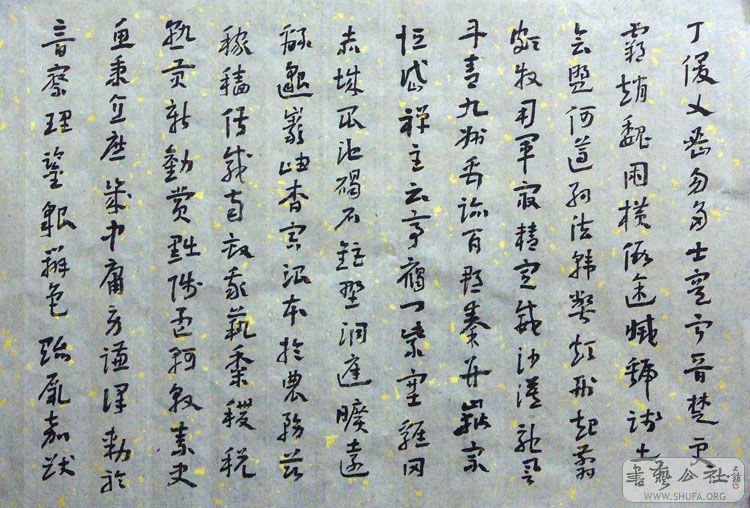 丁俊乂密勿多士寔宁晋楚更
霸趙魏困横假途滅虢踐土
会盟何遵約法韩弊烦刑起翦
頗牧用軍最精宣威沙漠馳誉
丹青九州禹迹百郡秦并嶽宗
恒岱禅主云亭雁门紫塞雞田
赤城昆池碣石鉅野洞庭曠遠
綿邈巖岫杳冥治本於農務兹
稼穡俶載南畝我藝黍稷税
熟貢新勸賞黜陟孟軻敦素史
魚秉直庶幾中庸勞謙謹勑聆
音察理鑒貌辨色貽厥嘉猷
書藝公社
WWW.SHUFA.ORG